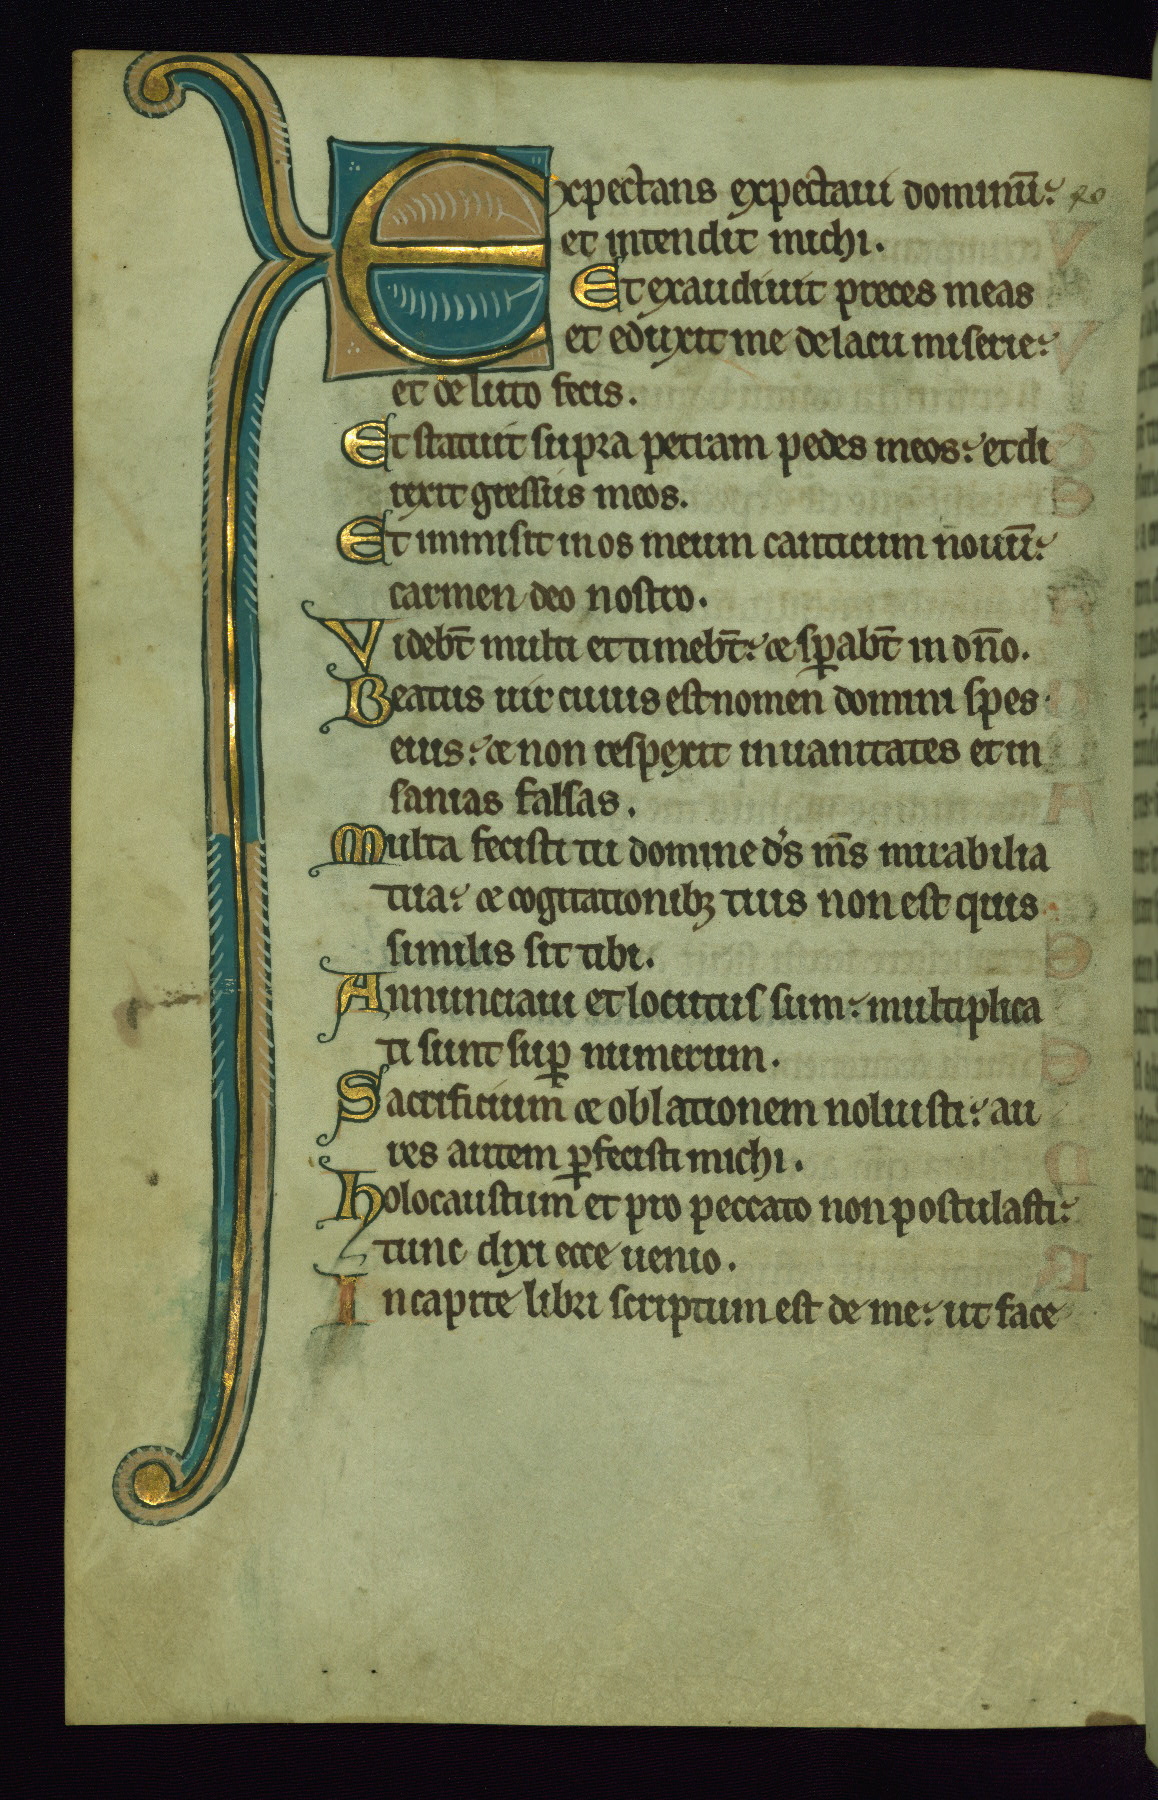 Expectans expectaui dominū: 40
et intendit michi.
Et exaudiuit preces meas
et eduxit me de lacu miserie:
et de luto fecis.
Et statuit supra petram pedes meos: et di
rexit gressus meos.
Et immisit in os meum canticum nouū:
carmen deo nostro.
Videbt̄ multi et timebt̄: ⁊ sꝑabt̄ in dn̄o.
Beatus uir cuius est nomen domini spes
eius: ⁊ non respexit in uanitates et in
sanias falsas.
Multa fecisti tu domine ds̓ ms̄ mirabilia
tua: ⁊ cogitationibꝫ tuis non est quis
similis sit tibi.
Annunciaui et locutus sum: multiplica
ti sunt suꝑ numerum.
Sacrificium ⁊ oblationem noluisti: au
res autem ꝑfecisti michi.
Holocaustum et pro peccato non postulasti:
tunc dixi ecce uenio.
In capite libri scriptum est de me: ut face